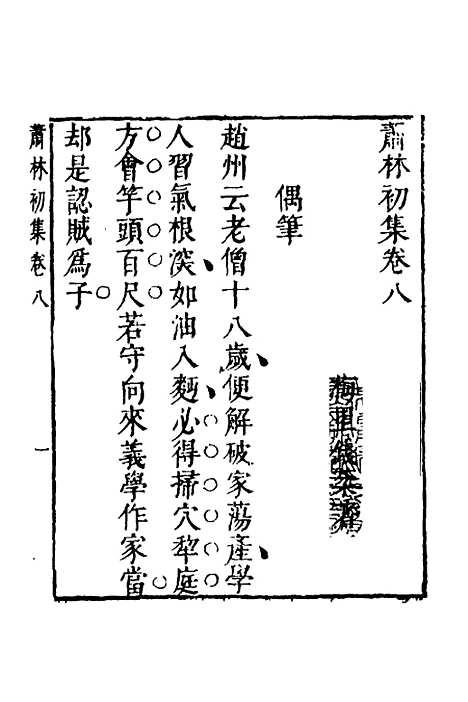 蕭林初集卷八
偶筆
趙州云老僧十八歲便解破家蕩產學
人習氣根深如油入麵必得掃穴犁庭
方會竿頭百尺若守向來義學作家當
却是認賊為子
蕭林初集卷八
一